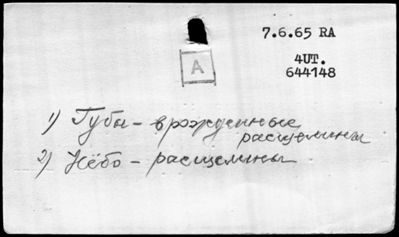 7.6.65 RA
4UT.
644148
A
1) Губы - врожденные
расщелины
2) Нёбо - расщелины